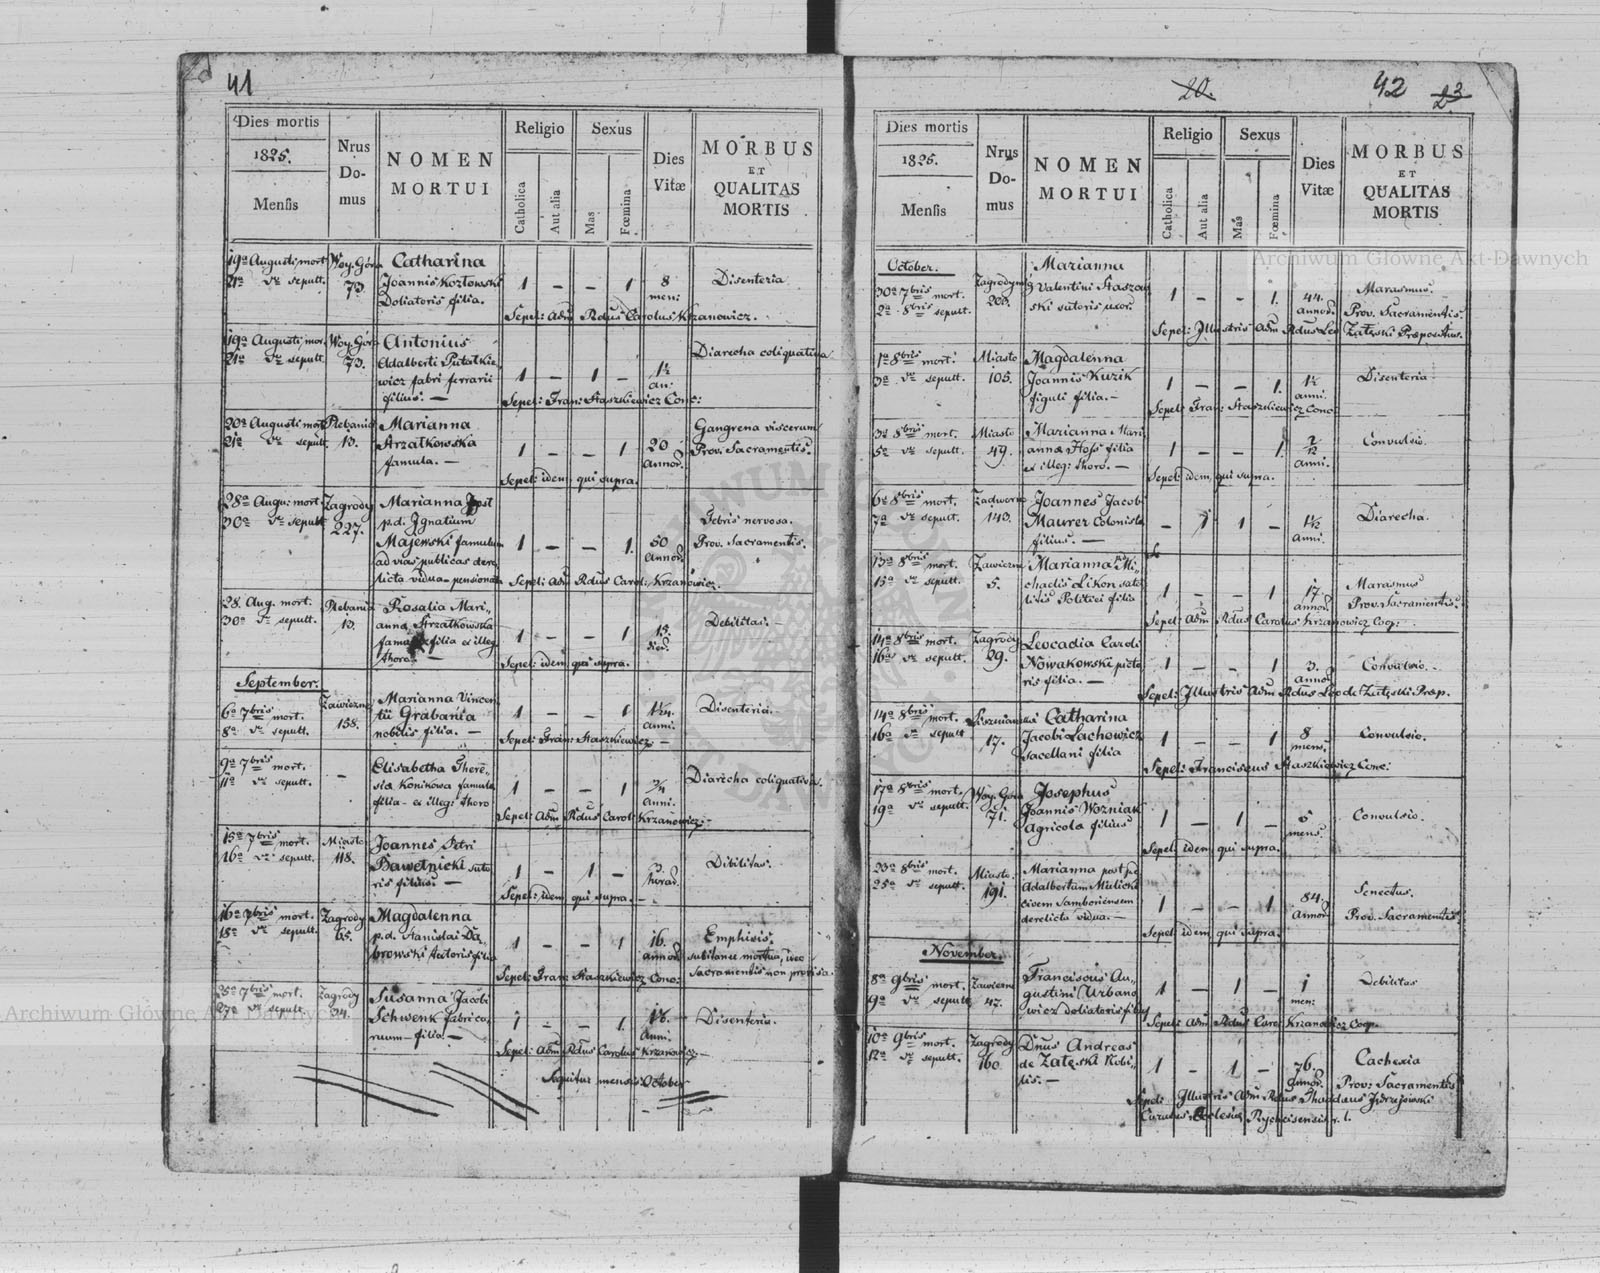 41
Dies mortis
1825.
Mensis
Nrus
Do-
mus
NOMEN
MORTUI
Religio
Catholica
Aut alia
Sexus
Mas
Fœmina
Dies
Vitæ
MORBUS
ET
QUALITAS
MORTIS
19a Augusti mort. Woy. Góra Catharina
21a dto sepult. 73. Joannis Kozłowski 1 – – 1 8 Disenteria
Doliatoris filia. men:
Sepel: Adm Rdus Carolus Krzanowicz.
19a Augusti mor. Woy. Góra Antonius
21a dto sepult. 73. Adalberti Putałkie- Diarecha coliquativa
wicz fabri ferrarii 1 – 1 – 1½
filius. — an:
Sepel: Fran: Staszkiewicz Conc:
20a Augusti mort. Plebania Marianna Gangrena viscerum
21a dto sepult. 13. Strzałkowska 1 – – 1 20 Prov. Sacramentis.
famula. — Annor.
Sepel: idem qui supra.
28a Augu: mort. Zagrody Marianna post
30a dto sepult. 227. p.d. Ignatium Febris nervosa.
Majewski famulum 1 – – 1. 50 Prov. Sacramentis.
ad vias publicas dere- Annor.
licta vidua pensionata Sepel: Adm Rdus Carol: Krzanowicz.
28. Aug. mort. Plebania Rosalia Mari-
30a dto sepult. 13. anna Strzałkowska Debilitas. —
famula filia ex illeg. 1 – – 1 15.
thoro. — dier.
Sepel: idem qui supra.
September.
6a 7bris mort. Zawiezne Marianna Vincen-
8a dto sepult. 158. tii Grabania 1 – – 1 Disenteria.
nobilis filia. — Anni.
Sepel: Fran: Staszkiewicz —
9a 7bris mort. – Elisabetha There-
11a dto sepult. sia Konikowa famula 1 – – 1 Diarecha coliquativa.
filia ex illeg: thoro Anni.
Sepel: Adm Rdus Carol: Krzanowicz —
15a 7bris mort. Miasto Joannes Petri
16a dto sepult. 118. Bawełnicki suto- 1 – 1 – 3. Dibilitas.
ris filius. — horar.
Sepel: idem qui supra. —
16a 7bris mort. Zagrody Magdalenna
18a dto sepult. 65. p.d. Stanislai Da- 1 – – 1 16. Emphisis.
browski sutoris filia annor. subitanee mortua, nec
Sepel: Fran: Staszkiewicz Conc: Sacramentis non provisa.
25a 7bris mort. Zagrody Susanna Jacobi
27a dto sepult. Schwenk fabri co- 1 – – 1. Disenteria.
filia. — Anni.
Sepel: Adm Rdus Carolus Krzanowicz. —
Sequitur mensis October
20.
42
23
Dies mortis
1825.
Mensis
Nrus
Do-
mus
NOMEN
MORTUI
Religio
Catholica
Aut alia
Sexus
Mas
Fœmina
Dies
Vitæ
MORBUS
ET
QUALITAS
MORTIS
October. Marianna
30a 7bris mort. Zagrodym Valentini Staszow- Marasmus.
2a 8bris sepult. 200. ski sutoris uxor. 1 – – 1. 44. annor. Prov. Sacramentis.
Sepel: Illustris Adm Rdus Leo Załęski Præpositus.
1a 8bris mort. Miasto Magdalenna
3a dto sepult. 105. Joannis Kuzik 1 – – 1. 1½ Disenteria
figuli filia. — anni.
Sepel: Fran: Staszkiewicz Conc
3a 8bris mort. Miasto Marianna Mari-
5a dto sepult. 49. annæ Hoss filia 1 – – 1. Convulsio.
ex illeg: thoro. — Anni.
Sepel: idem qui supra.
6a 8bris mort. Zadworne Joannes Jacobi
7a dto sepult. 143. Maurer Colonistæ – 1 1 – 1½ Diarecha.
filius. — Anni.
13a 8bris mort. Zawiezne Marianna Mi-
15a dto sepult. 5. chaelis Likon satel- 1 – – 1 17 Marasmus
litis Politiei filia annor. Prov. Sacramentis.
Sepel: Adm Rdus Carolus Krzanowicz Coop:
14a 8bris mort. Zagrody Leocadia Caroli
16a dto sepult. 29. Nowakowski picto- 1 – – 1 3. Convulsio. –
ris filia. — annor.
Sepel: Illustris Adm Rdus Leo de Załęski Præp.
14a 8bris mort. Catharina
16a dto sepult. 17. Jacobi Lachowicz 1 – – 1 8 Convulsio.
Sacellani filia mens.
Sepel: Franciscus Staszkiewicz Conc:
17a 8bris mort. Woy. Góra Josephus
19a dto sepult. 71. Joannis Wozniak 1 – 1 – 5 Convulsio.
Agricola filius mens.
Sepel: idem qui supra.
23a 8bris mort. Miasto Marianna post p.d.
25a dto sepult. 191. Adalbertum Mulicki Senectus.
civem Samboriensem 1 – – 1 84. Annor. Prov. Sacramentis.
derelicta vidua. —
Sepel: idem qui supra.
November.
8a 9bris mort. Zawiezne Franciscus Au-
9a dto sepult. 47. gustini Urbano- 1 – 1 – 1 Debilitas
wicz doliatoris filius men:
Sepel: Adm Rdus Carol: Krzanowicz Coop.
10a 9bris mort. Zagrody Dnus Andreas
12a dto sepult. 160 de Załęski Nobi- 1 – 1 – 76. Cachexia
lis. — Annor. Prov: Sacramentis
Sepel: Illustris Adm Rdus Thaddæus Jędrzejowski
Curatus Ecclesiæ Rychcisensis r. l.
Archiwum Główne Akt Dawnych
Archiwum Główne Akt Dawnych